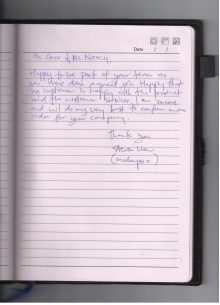 Date / /
In Care of Ms Nancy.
Happy to be part of your team as
you have done a great job. Happy that
the customer is happy with the product
and the customer services. I am sincere
and will do my very best to confirm more
order for your company.
Thank you
(malaysia)